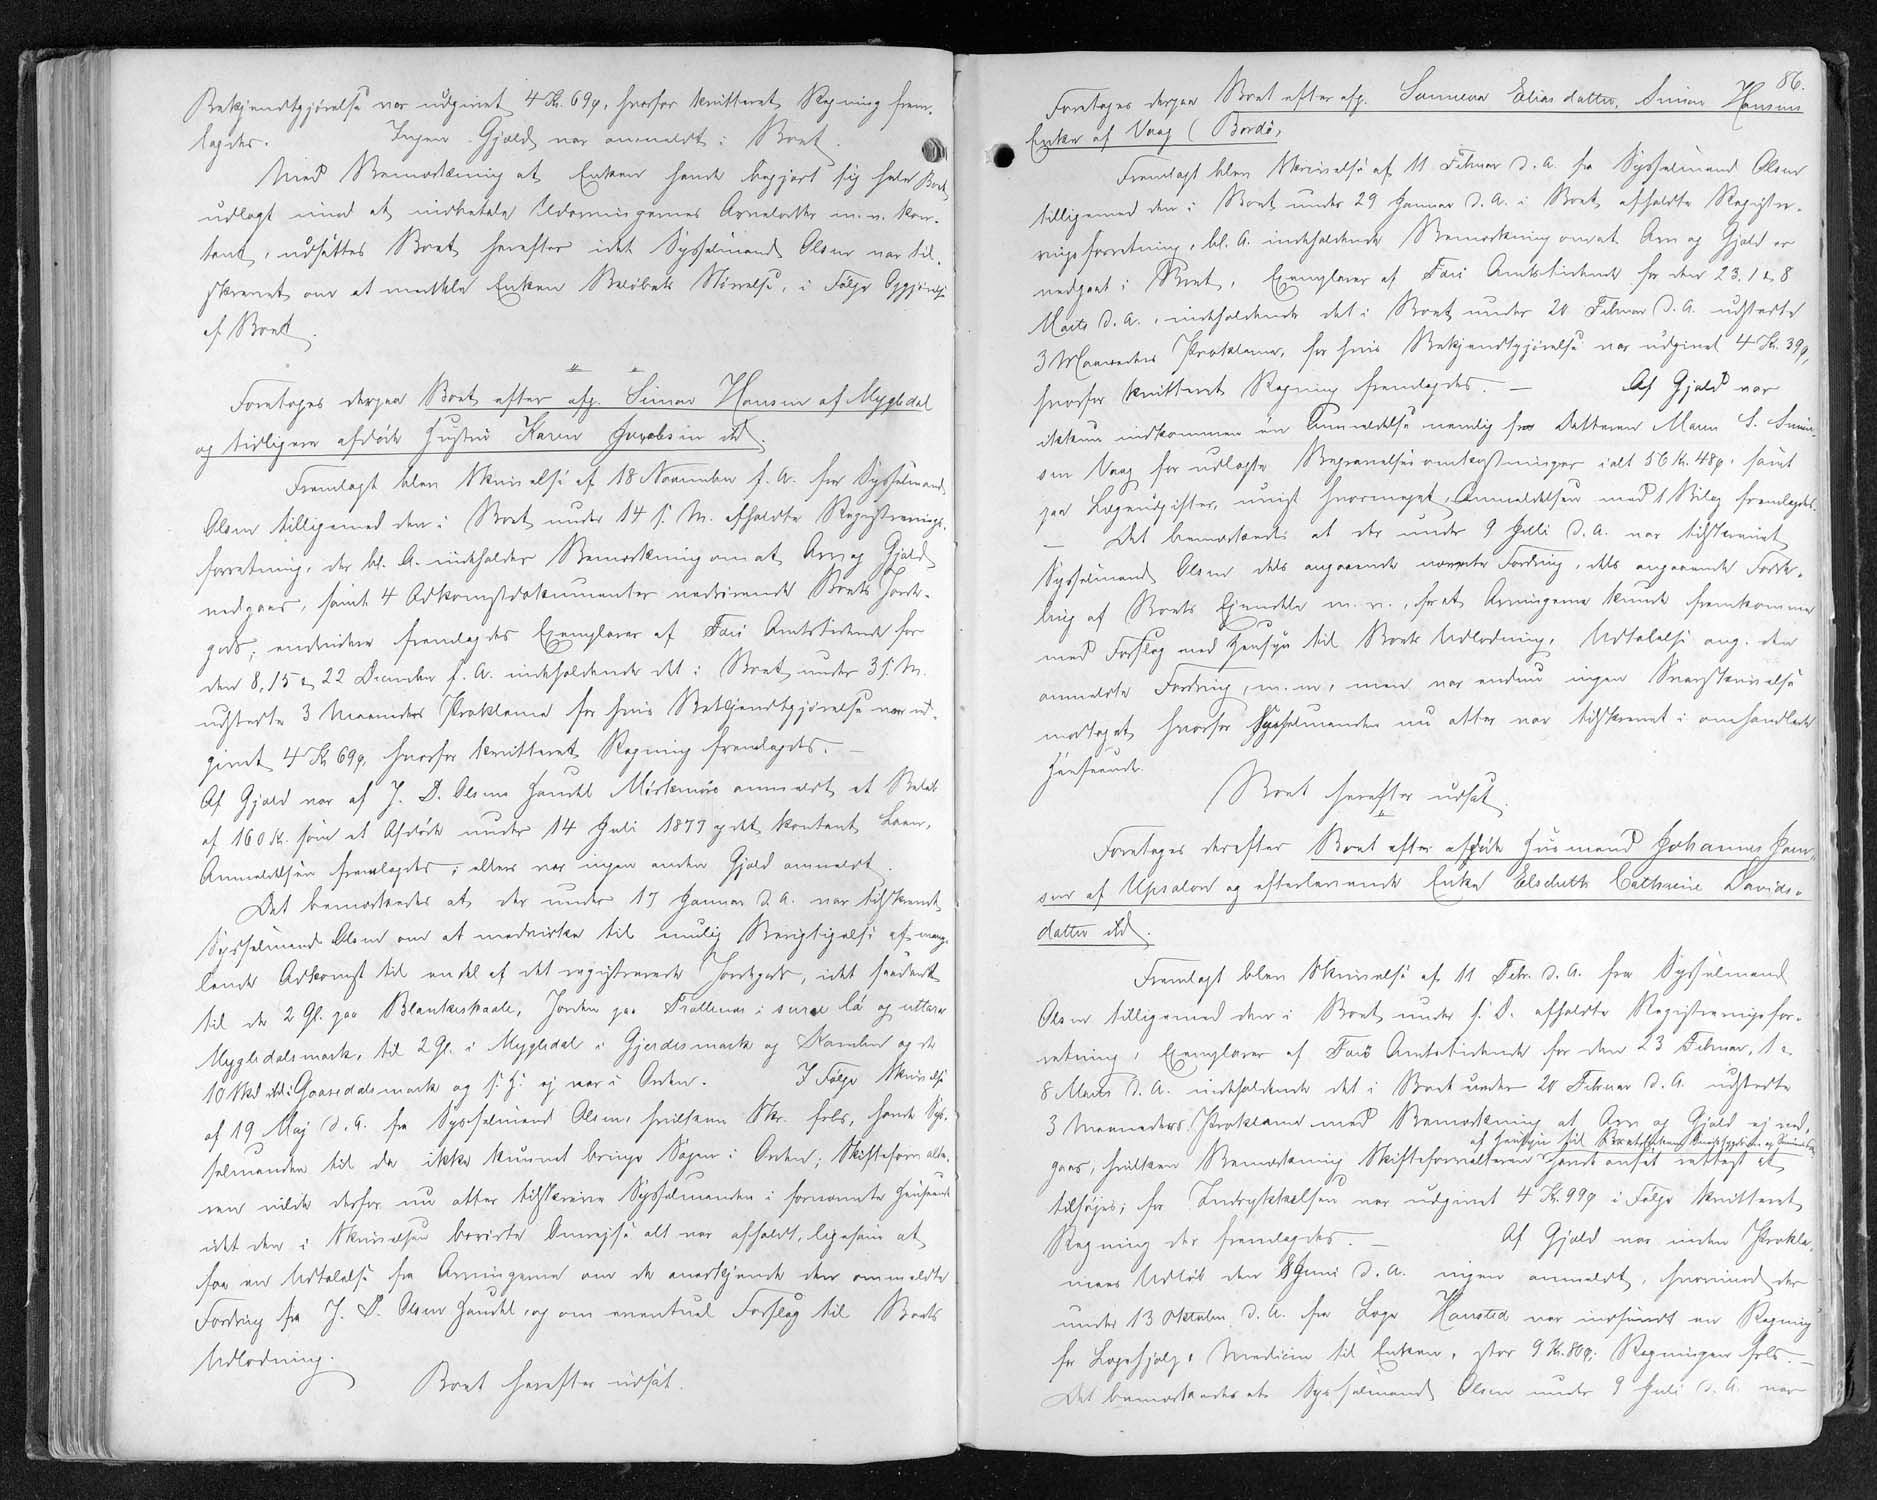 Bekjendtgjørelse var udgivet 4 Kr. 69 ø, hvorfor kvitteret Regning frem-
lagdes. Ingen Gjæld var anmeldt i Boet.
Med Bemærkning at Enken havde begjært sig hele Boet
udlagt imod at indbetale Udarvingernes Arvelodder m. v. kon-
tant, udsattes Boet herefter idet Sysselmand Olsen var til-
skrevet om at meddele Enken Beløbets Størrelse, i Følge Opgjørelse
af Boet.
Foretoges derpaa Boet efter afg. Simon Hansen af Mygledal
og tidligere afdøde Hustru Karen Jacobsen ibd.
Fremlagt blev Skrivelse af 18 November f. A. fra Sysselmand
Olsen tilligemed den i Boet under 14 s. M. afholdte Registrerings-
forretning, der bl. A. indeholder Bemærkning om at Arv og Gjæld
vedgaaes, samt 4 Adkomstdokumenter vedrørende Boets Jorde-
gods; endvidere fremlagdes Exemplarer af Færø Amtstidende for
den 8, 15 & 22 December f. A. indeholdende det i Boet under 3 s. M.
udstedte 3 Maaneders Proklama for hvis Bekjendtgjørelse var ud-
givet 4 Kr 69 ø, hvorfor kvitteret Regning fremlagdes. —
Af Gjæld var af J. D. Olsens Handel Mikladalsnæs anmeldt et Beløb
af 160 Kr. som et Afdøde under 14 Juli 1879 ydet kontant Laan,
Anmeldelsen fremlagdes; ellers var ingen anden Gjæld anmeldt.
Det bemærkedes at der under 17 Januar d. A. var tilskrevet
Sysselmand Olsen om at medvirke til mulig Berigtigelse af mang-
lende Adkomst til en del af det registrerede Jordegods, idet saadant
til de 2 Gl. paa Blankeskaale, Jorden paa Trøllenæs i
Mygledalsmark, til 2 Gl. i Mygledal i Gjerdismark og og de
10 Skd ibd i Gaasedalsmark og s. H. ej var i Orden. I Følge Skrivelse
af 19 Maj d. A. fra Sysselmand Olsen, hvilken Skr. frls., havde Sys-
selmanden til da ikke kunnet bringe Sagen i Orden; Skifteforvalte-
ren vilde derfor nu atter tilskrive Sysselmanden i fornævnte Henseende
idet den i Skrivelsen berørte Omrejse alt var afholdt, ligesom at
faa en Udtalelse fra Arvingerne om de anerkjende den anmeldte
Fordring fra J. D. Olsens Handel, og om eventuel Forslag til Boets
Udlodning.
Boet herefter udsat.
86.
Foretoges derpaa Boet efter afg. Sunneva Eliasdatter, Simon Hansens
Enke af Vaag (Bordø,
Fremlagt blev Skrivelse af 11 Februar d. A. fra Sysselmand Olsen
tilligemed den i Boet under 29 Januar d. A. i Boet afholdte Registre-
ringsforretning, bl. A. indeholdende Bemærkning om at Arv og Gjæld er
vedgaaet i Boet, Exemplarer af Færø Amtstidende for den 23, 1 & 8
Marts d. A., indeholdende det i Boet under 20 Februar d. A. udstedte
3 Maaneders Proklama, for hvis Bekjendtgjørelse var udgivet 4 Kr. 39 ø,
hvorfor kvitteret Regning fremlagdes. — Af Gjæld var
ikkun indkommen én Anmeldelse nemlig fra Datteren Maren S. Simon-
sen Vaag for udlagte Begravelsesomkostninger ialt 56 Kr. 48 ø. samt
paa Lægeudgifter, uvist hvormeget, Anmeldelsen med 1 Bilag fremlagdes.
— Det bemærkedes at der under 9 Juli d. A. var tilskrevet
Sysselmand Olsen dels angaaende nævnte Fordring, dels angaaende Forde-
ling af Boets Ejendele m. v., for at Arvingerne kunde fremkomme
med Forslag med Hensyn til Boets Udlodning, Udtalelse ang. den
anmeldte Fordring, m. m., men var endnu ingen Svarskrivelse
modtaget hvorfor Sysselmanden nu atter var tilskrevet i omhandlede
Henseende.
Boet herefter udsat.
Foretoges derefter Boet efter afdøde Husmand Johannes Joen-
sen af Uppsalon og efterlevende Enke Elsebeth Cathrine Davids-
datter ibd.
Fremlagt blev Skrivelse af 11 Febr. d. A. fra Sysselmand
Olsen tilligemed den i Boet under s. D. afholdte Registreringsfor-
retning, Exemplarer af Færø Amtstidende for den 23 Februar, 1 &
8 Marts d. A. indeholdende det i Boet under 20 Februar d. A. udstedte
3 Maaneders Proklama med Bemærkning at Arv og Gjæld ej ved-
af Hensyn til Boets
gaaes, hvilken Bemærkning Skifteforvalteren havde anset rettest at
tilføjes; for Indrykkelsen var udgivet 4 Kr. 99 ø i Følge kvitteret
Regning der fremlagdes. — Af Gjæld var inden Prokla-
maets Udløb den 8 Juni d. A. ingen anmeldt, hvorimod der
under 13 Oktober d. A. fra Læge Hansted var indsendt en Regning
for Lægehjælp & Medicin til Enken, stor 9 Kr. 80 ø; Regningen frls. —
Det bemærkedes at Sysselmand Olsen under 9 Juli d. A. var